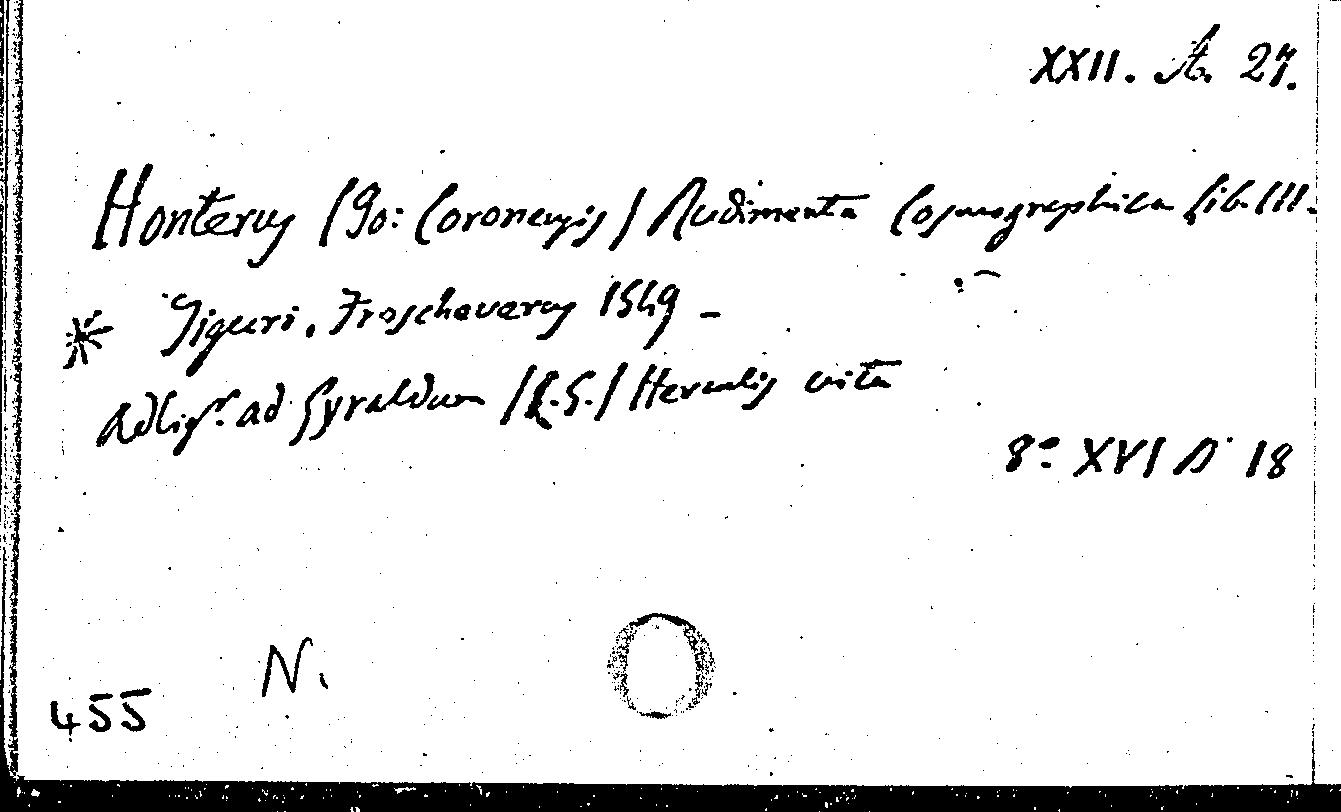 XXII. A. 27.
Honterus /Jo: Coronensis/ Rudimenta Cosmographica lib. III.
* Tiguri. Froschoverus 1549 –
Adligt. ad Gyraldum /L.G./ Herculis vita
8° XVI D 18
N.
455